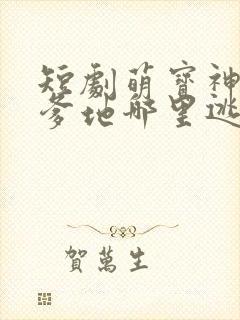 短劇萌寶神
爹地哪里逃
賀萬生